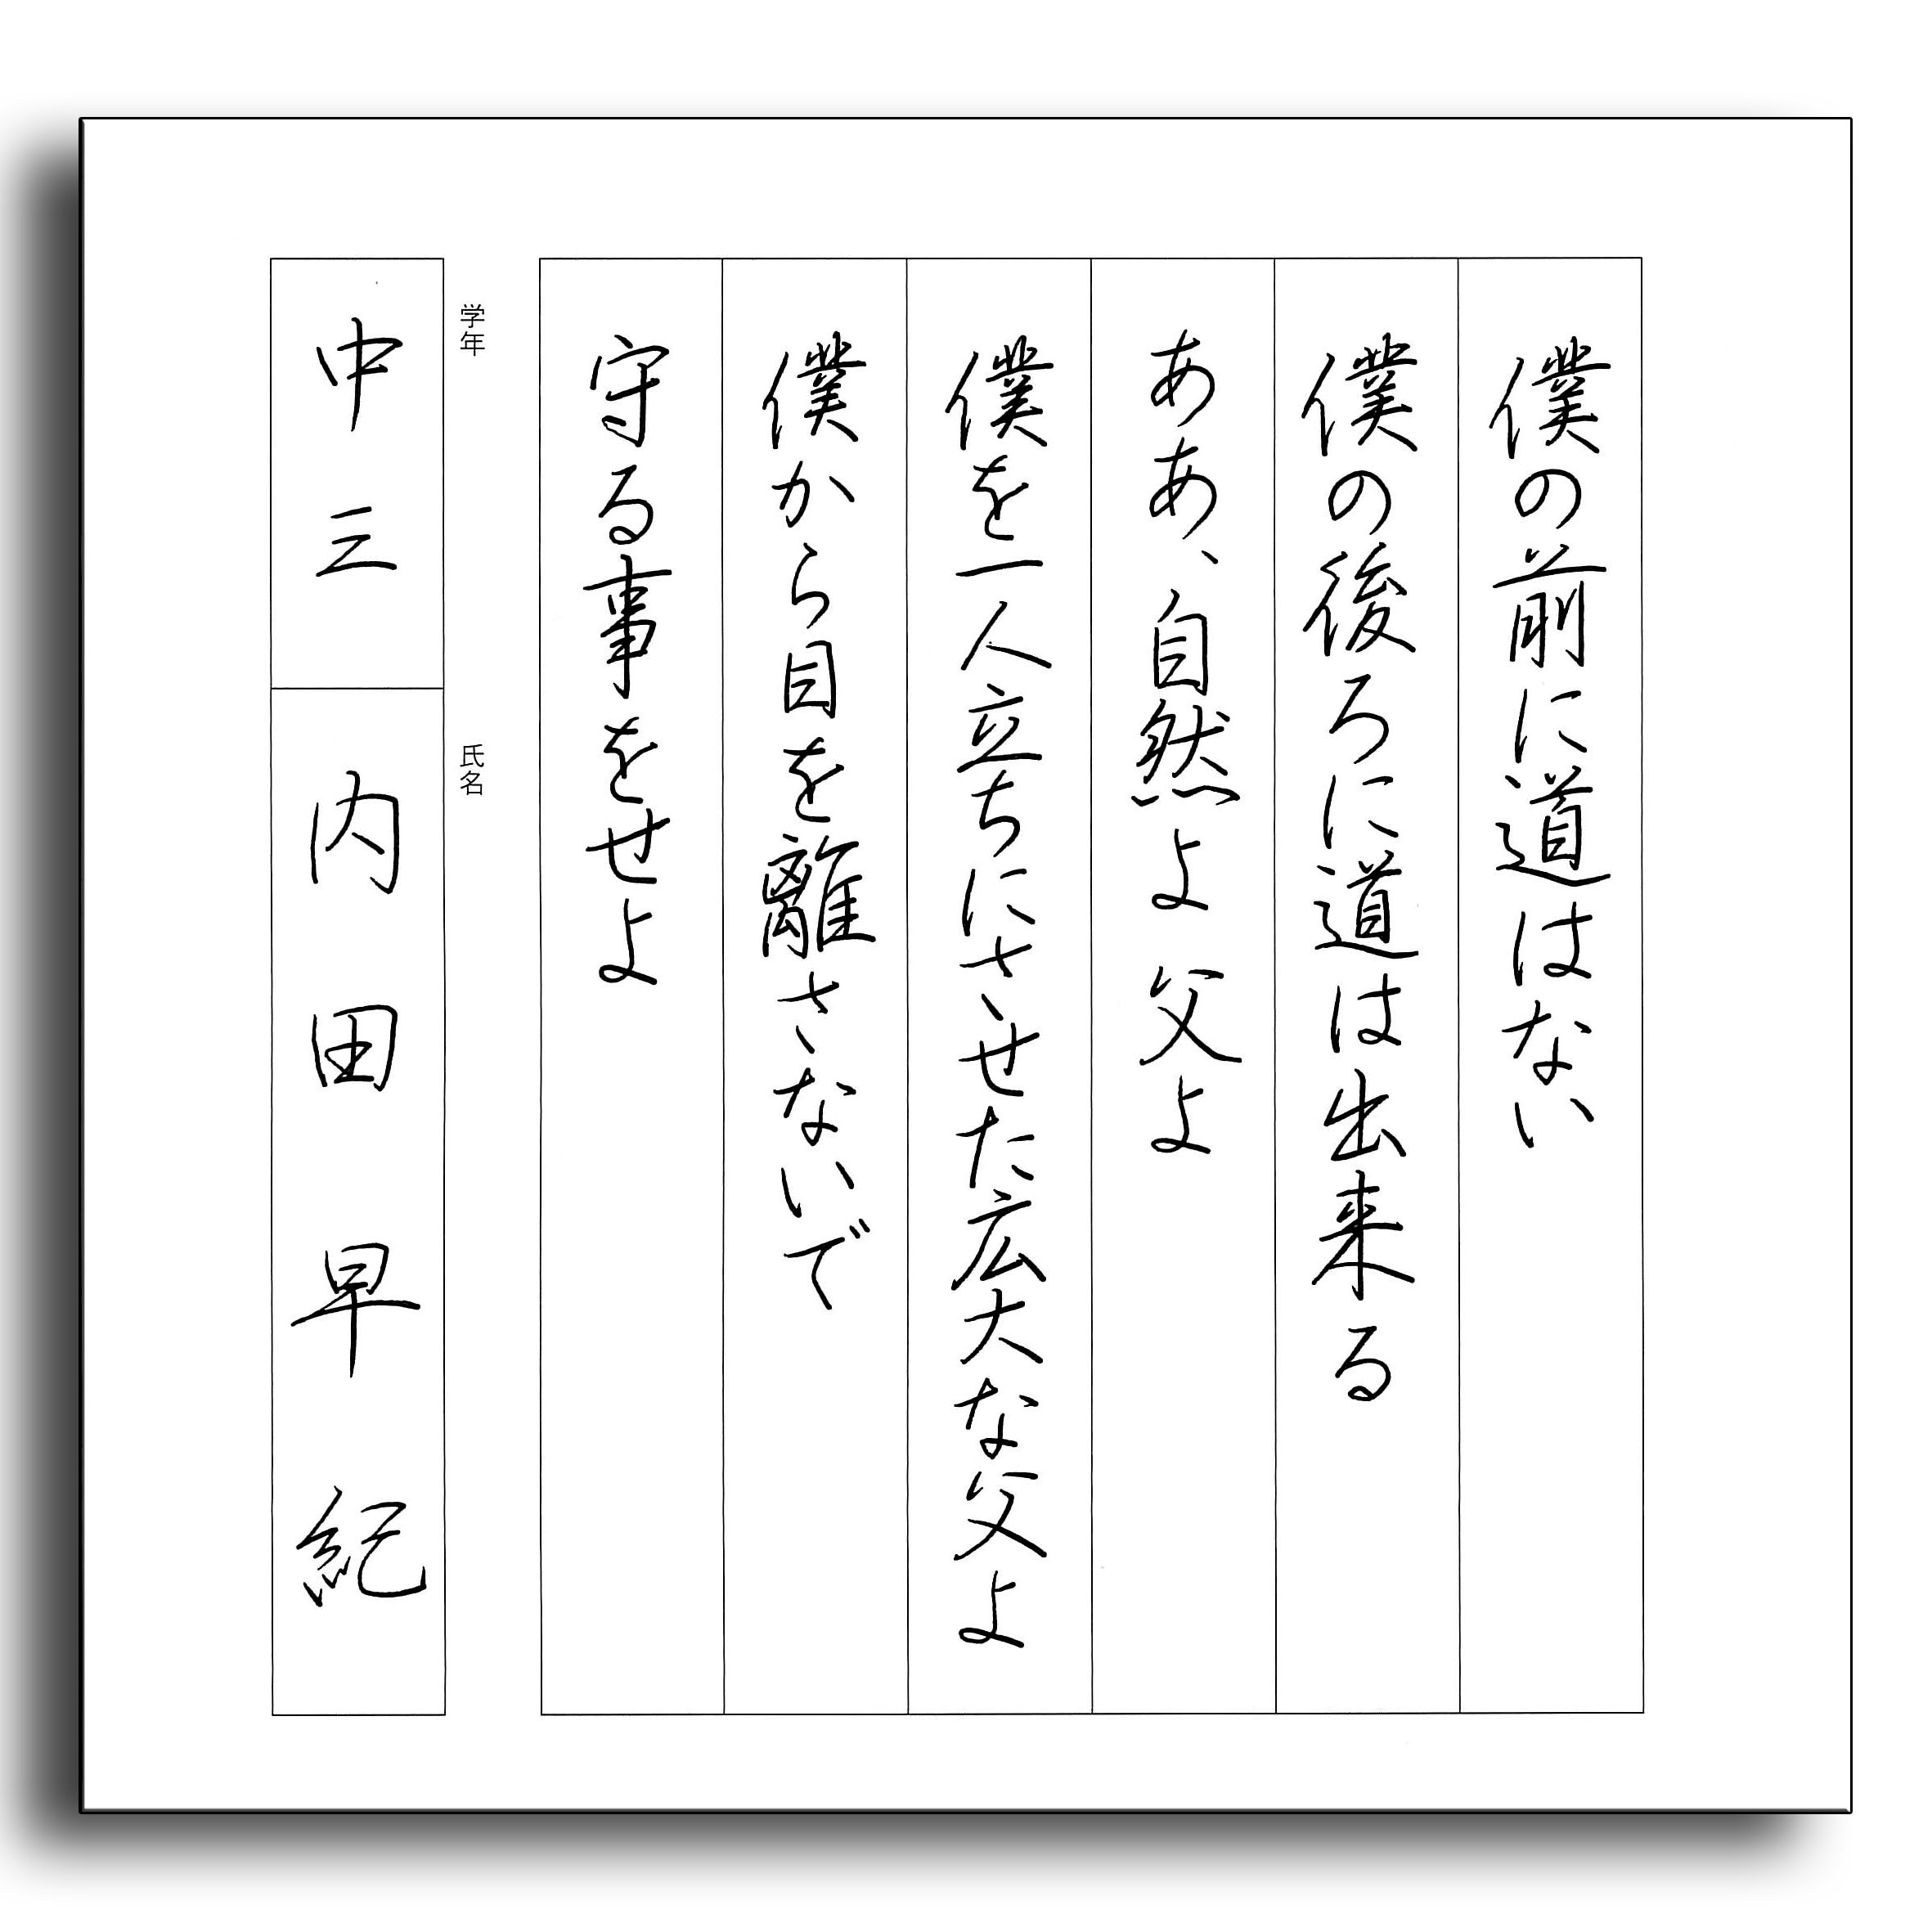 僕の前に道はない
僕の後ろに道は出来る
ああ、自然よ 父よ
僕を一人立ちにさせた広大な父よ
僕から目を離さないで
守る事をせよ
学年
中三
氏名
内田早紀